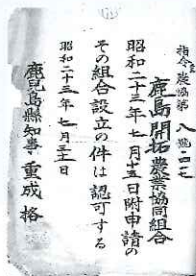 指令農協第八號ノ四七
鹿島開拓農業協同組合
昭和二十三年七月十五日附申請の
その組合設立の件は認可する
昭和二十三年七月三十一日
鹿兒島縣知事 重成格